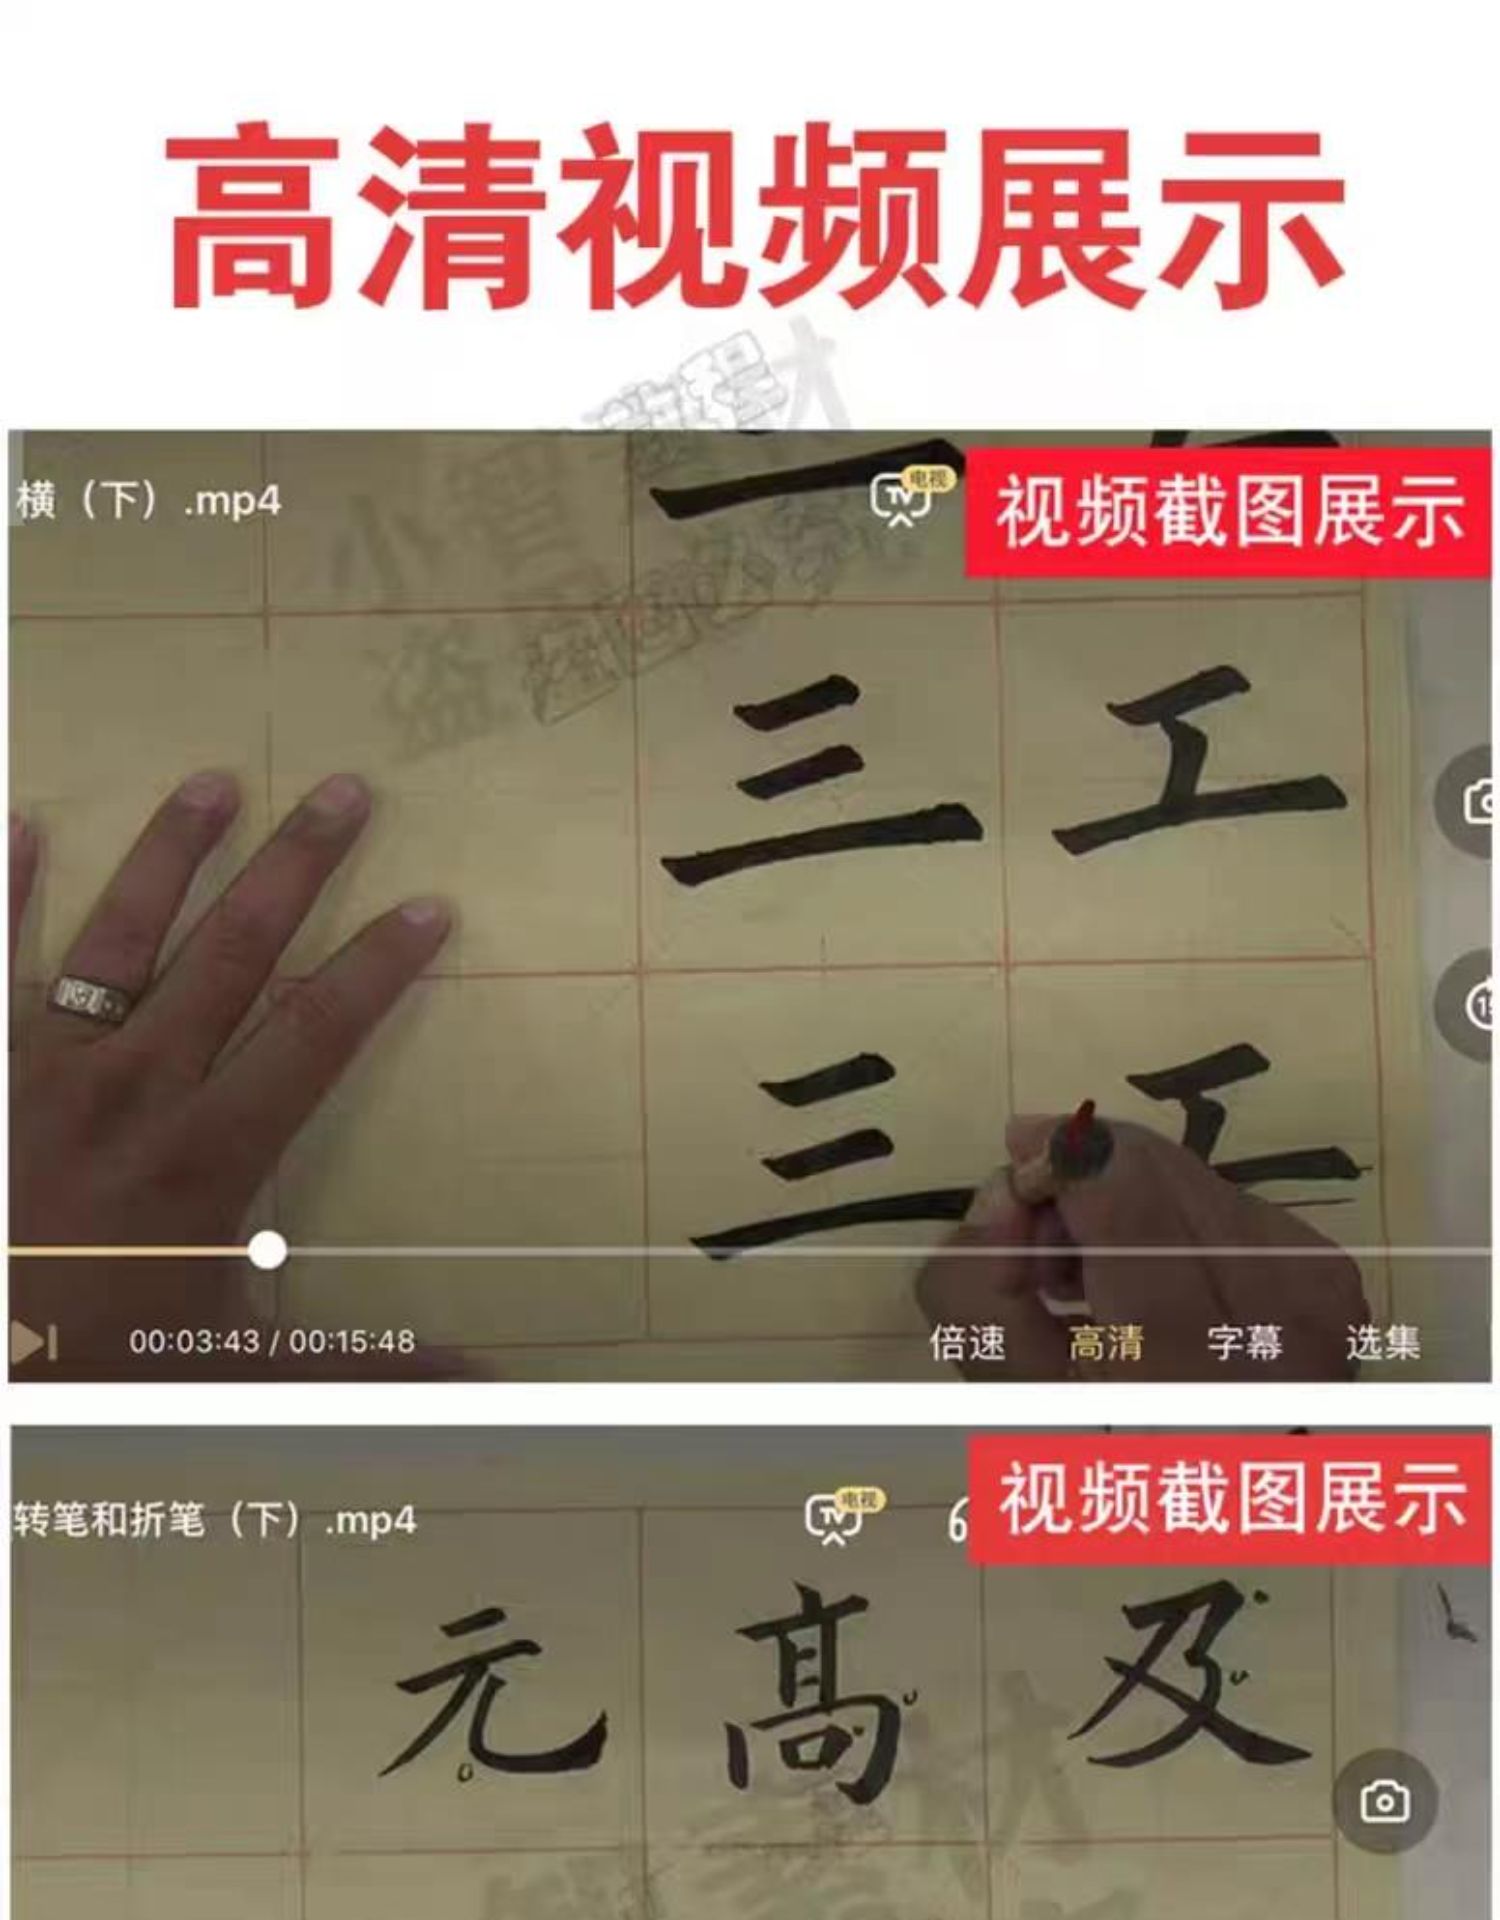 高清视频展示
横（下）.mp4
电视
TV
视频截图展示
三 工
三 工
00:03:43 / 00:15:48
倍速 高清 字幕 选集
转笔和折笔（下）.mp4
电视
TV
6
视频截图展示
元 高 及